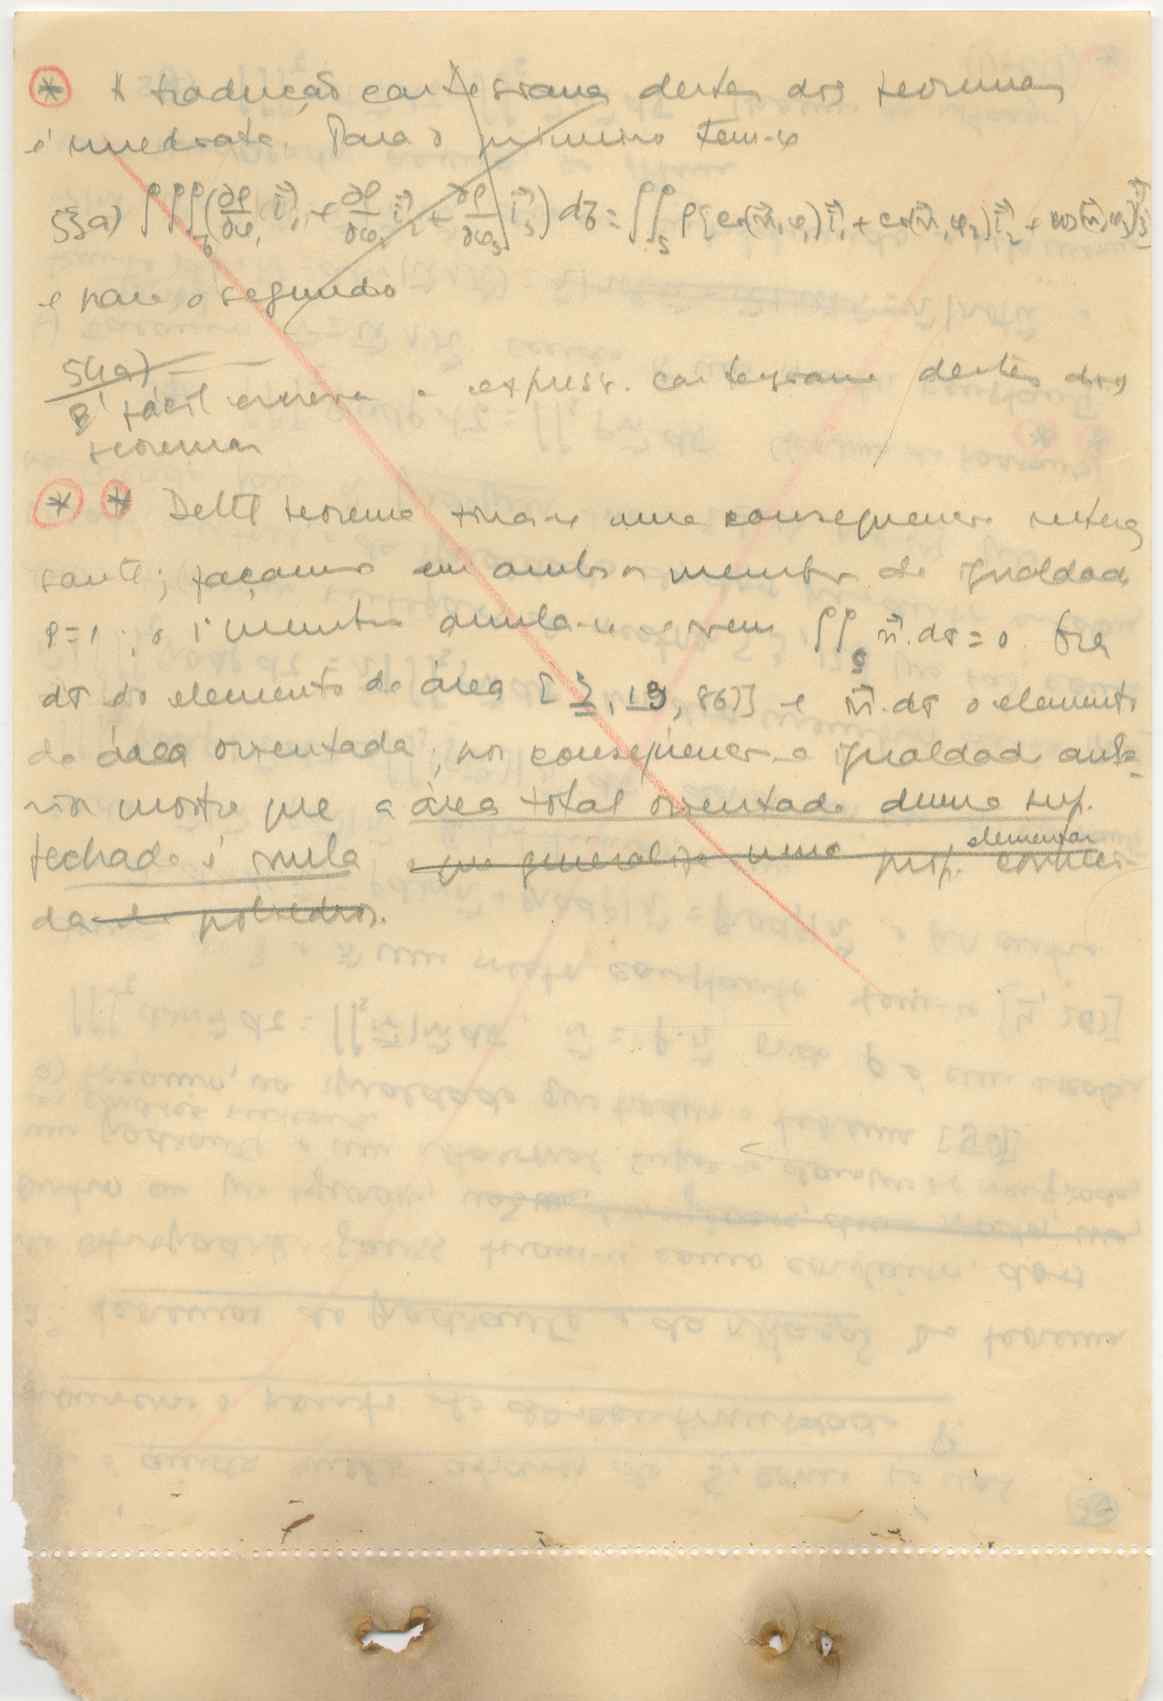 * A tradução cartesiana destes dois teoremas
é imediata. Para o primeiro tem-se
53a) ∫∫∫_τ (∂ρ/∂φ₁ i⃗₁ + ∂ρ/∂φ₂ i⃗₂ + ∂ρ/∂φ₃ i⃗₃) dτ = ∫∫_S ρ[cos(n⃗,φ₁) i⃗₁ + cos(n⃗,φ₂) i⃗₂ + cos(n⃗,φ₃) i⃗₃]
e para o segundo
54a)
É fácil escrever a express. cartesiana destes dois
teoremas
* * Deste teorema tira-se uma consequência interes
sante; façamos em ambos os membros da igualdade
ρ=1; o 1º membro anula-se e vem ∫∫_S n⃗.dσ=0. Ora
dσ do elemento de área [2, 19, 86)] e n⃗.dσ o elemento
de área orientada; por consequência a igualdade ante-
rior mostra que a área total orientada duma sup.
fechada é nula o que generaliza uma prop. elementar conheci
da de poliedros.